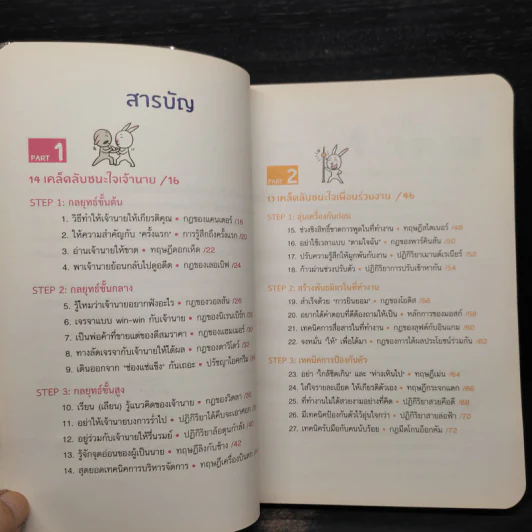 สารบัญ
PART 1
14 เคล็ดลับชนะใจเจ้านาย /16
STEP 1: กลยุทธ์ขั้นต้น
1. วิธีทำให้เจ้านายให้เกียรติคุณ • กฎของแคนเตอร์ /18
2. ให้ความสำคัญกับ "ครั้งแรก" • การรู้สึกถึงครั้งแรก /20
3. อ่านเจ้านายให้ขาด • ทฤษฎีดอกเห็ด /22
4. พาเจ้านายย้อนกลับไปดูอดีต • กฎของเลอเนิฟ /24
STEP 2: กลยุทธ์ขั้นกลาง
5. รู้ไหมว่าเจ้านายอยากฟังอะไร • กฎของวอลสัน /26
6. เจรจาแบบ win-win กับเจ้านาย • กฎของนิเรนเบิร์ก
7. เป็นพ่อค้าที่ขายแต่ของดีสมราคา • กฎของแฮมเมอร์
8. ทางลัดเจรจากับเจ้านายให้ได้ผล • กฎของดาวิโดว์
9. เดินออกจาก "ช่องแช่แข็ง" เถอะ • ปรัชญาไอศกรีม
STEP 3: กลยุทธ์ขั้นสูง
10. เรียน (เลียน) รู้แนวคิดของเจ้านาย • กฎของวิตลา
11. อย่าให้เจ้านายบงการร่ำไป • ปฏิกิริยาได้คืบจะเอาศอก
12. อยู่ร่วมกับเจ้านายให้รื่นรมย์ • ปฏิกิริยาล้อตุนกำลัง
13. รู้จักจุดอ่อนของผู้เป็นนาย • ทฤษฎีลิงกับช้าง /42
14. สุดยอดเทคนิคการบริหารจัดการ • ทฤษฎีเครื่องปั่น
PART 2
13 เคล็ดลับชนะใจเพื่อนร่วมงาน /46
STEP 1: อุ่นเครื่องกันก่อน
15. ช่วงชิงสิทธิ์ขาดการพูดในที่ทำงาน • ทฤษฎีสไตเนอร์ /48
16. อย่าใช้เวลาแบบ "ตามใจฉัน" • กฎของพาร์คินสัน /50
17. ปรับความรู้สึกให้ผูกพันกับงาน • ปฏิกิริยาเมานต์เรเนียร์ /52
18. ก้าวผ่านช่วงปรับตัว • ปฏิกิริยาการปรับเข้าหากัน /54
STEP 2: สร้างพันธมิตรในที่ทำงาน
19. สำเร็จด้วย "การยินยอม" • กฎของโอดิส /56
20. อยากได้คำตอบที่ดีต้องถามให้เป็น • หลักการของมอสก์ /58
21. เทคนิคการสื่อสารในที่ทำงาน • กฎของลุฟต์กับอินแกม /60
22. จงหมั่น "ให้" เพื่อได้มา • กฎของการได้ผลประโยชน์ร่วมกัน
STEP 3: เทคนิคการป้องกันตัว
23. อย่า "ใกล้ชิดเกิน" และ "ห่างเหินไป" • ทฤษฎีเม่น /64
24. ใส่ใจรายละเอียด ให้เกียรติตัวเอง • ทฤษฎีกระจกแตก /66
25. ที่ทำงานไม่ได้สวยงามอย่างที่คิด • ปฏิกิริยาสวยคือดี /68
26. มีเทคนิคป้องกันตัวไว้อุ่นใจกว่า • ปฏิกิริยาสายล่อฟ้า /70
27. เทคนิครับมือกับคนนับร้อย • กฎมีดโกนอ็อกคัม /72